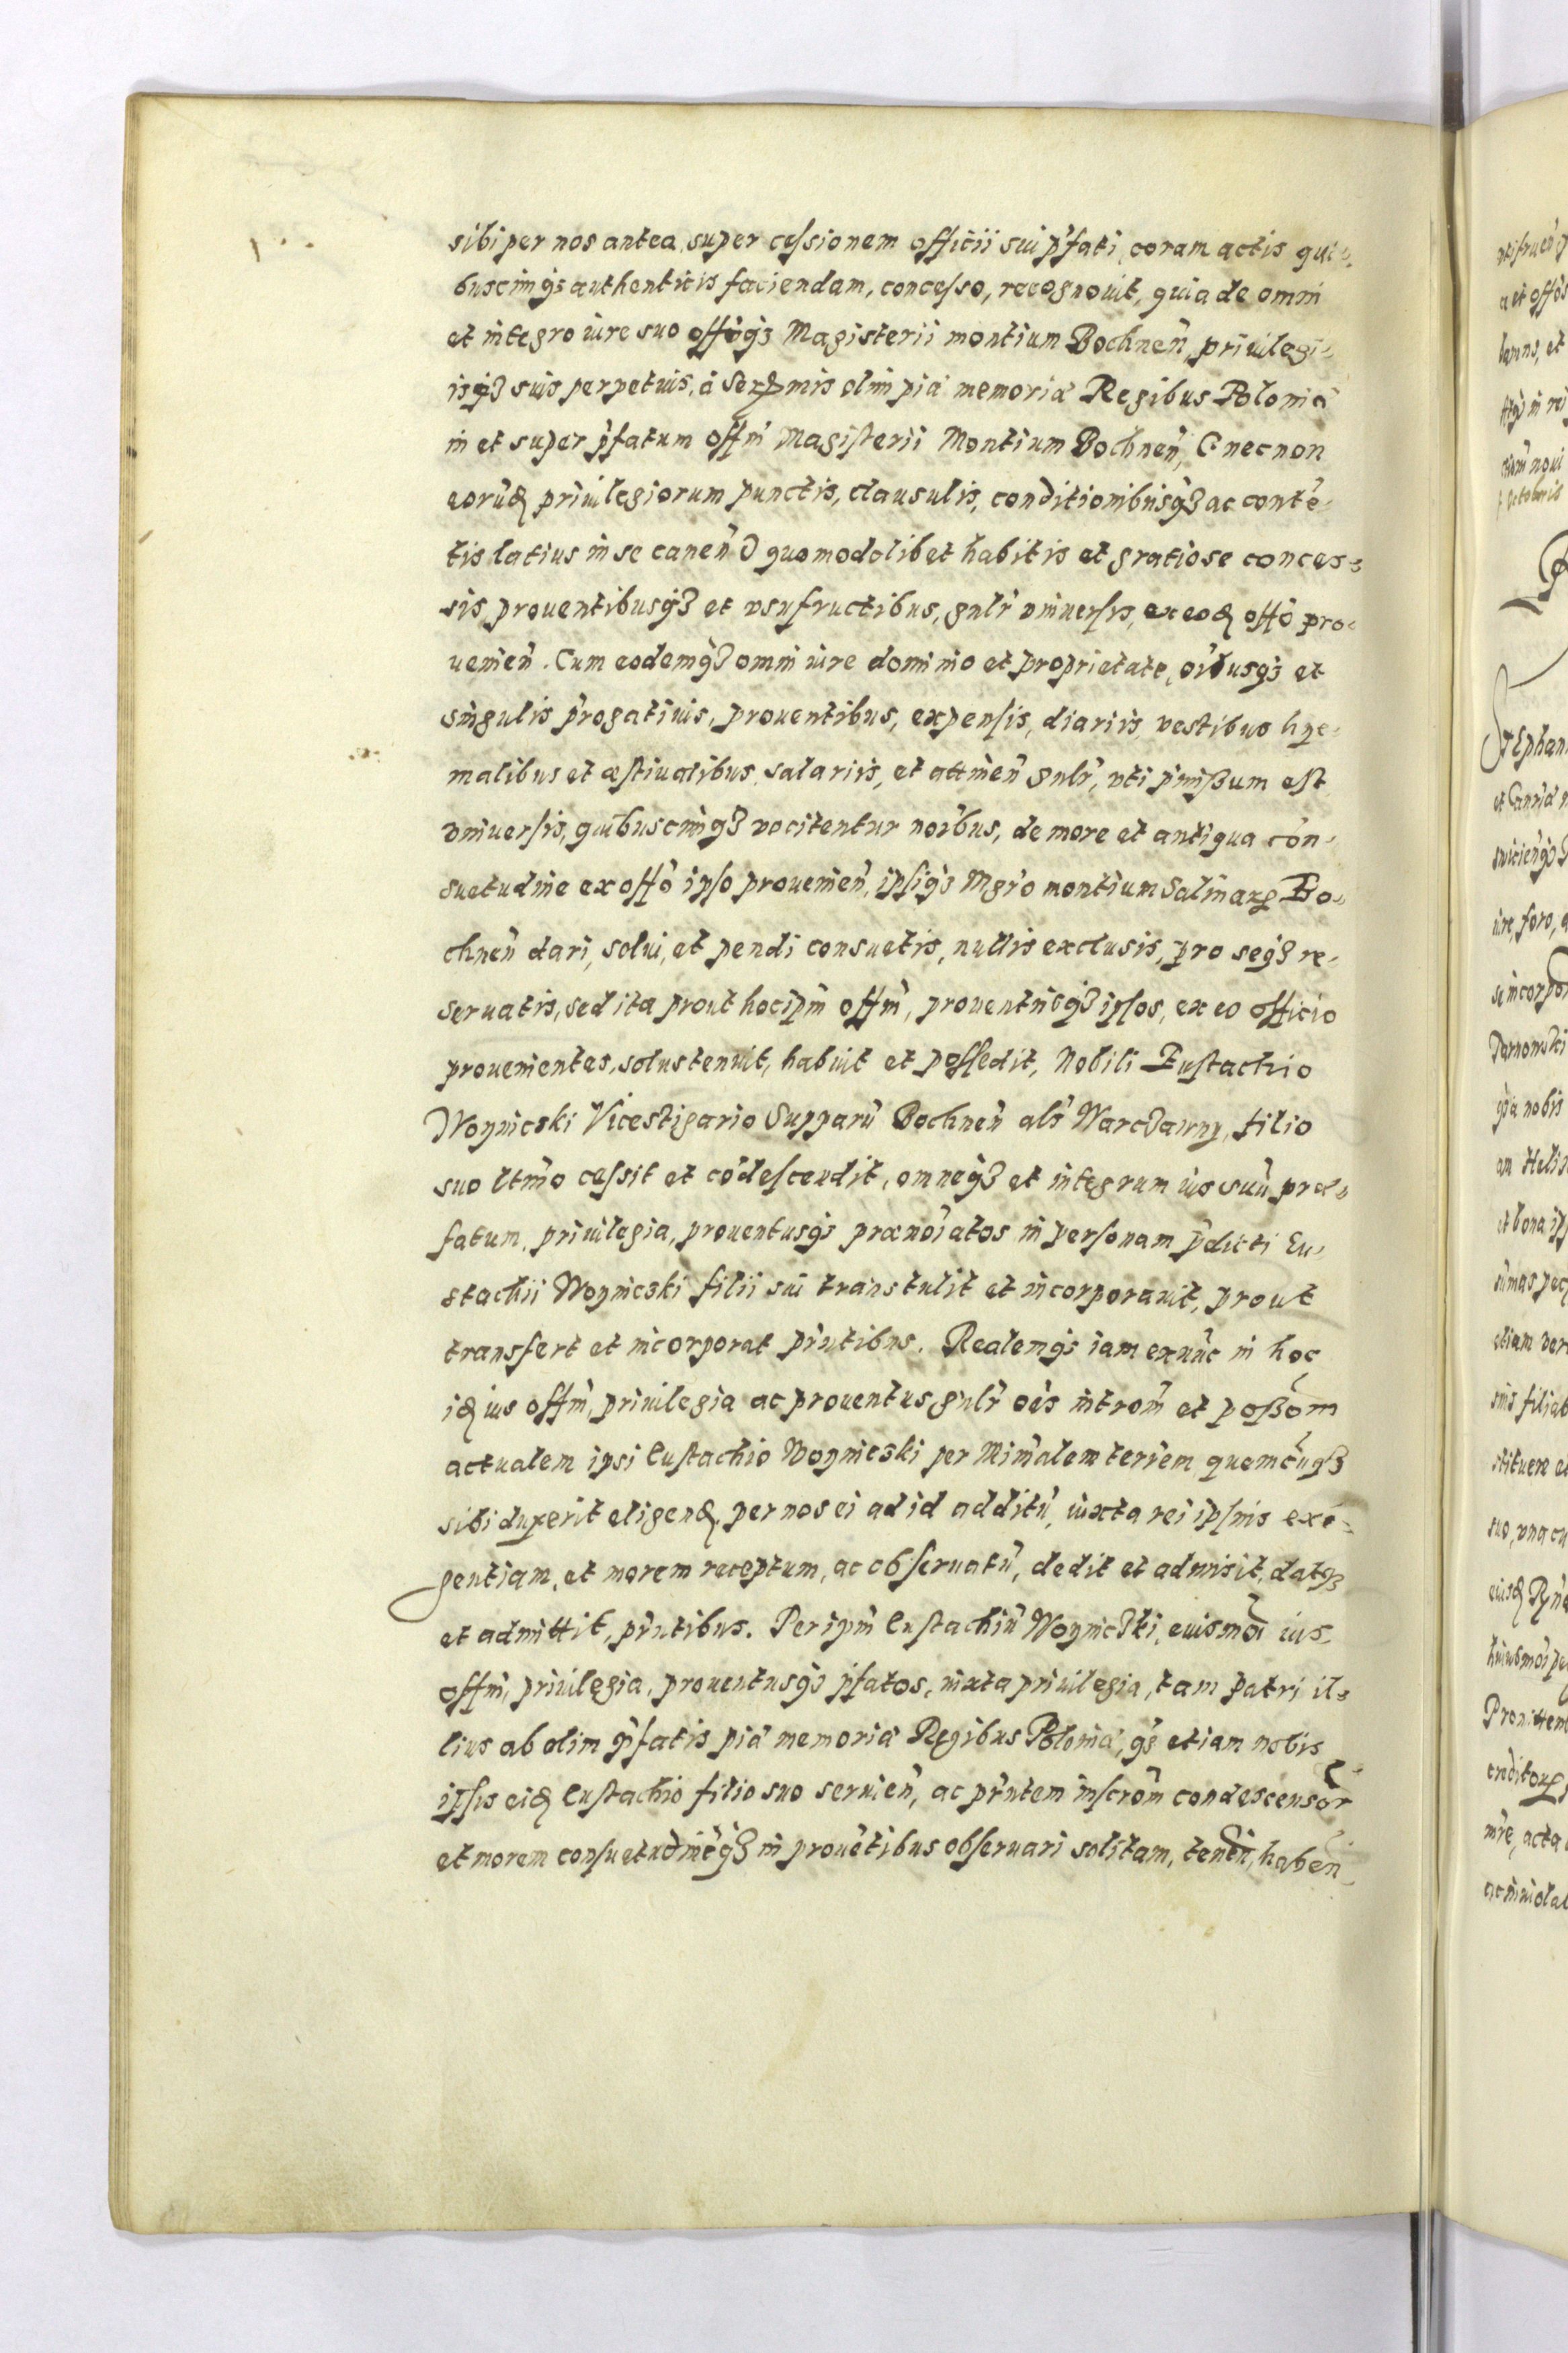 sibi per nos antea super cessionem officii sui p̃fati, coram actis qui-
buscunq3 authenticis faciendam, concesso, recognouit, quia de omni
et integro iure suo officiq3 Magisterii montium Bochneñ, priuilegi-
isq3 suis perpetuis, à Serẽmis olim piæ memoriæ Regibus Poloniæ
in et super p̃fatum offm̃ Magisterii Montium Bochneñ, (necnon
eorũd. priuilegiorum punctis, clausulis, conditionibusq3 ac contẽ-
tis latius in se caneñ) quomodolibet habitis et gratiose conces-
sis, prouentibusq3 et vsufructibus, gnlr̃ vniuersis, ex eod. offõ pro-
uenieñ. Cum eodemq3 omni iure dominio et proprietate, oĩbusq3 et
singulis p̃rogatiuis, prouentibus, expensis, diariis, vestibus hye-
malibus et æstiuatibus, salariis, et attineñ gnlr̃, vti p̃mißum est
vniuersis, quibuscunq3 vocitentur noĩbus, de more et antiqua con-
suetudine ex offõ ipso prouenieñ, ipsiq3 Mgr̃o montium Salinarꝝ Bo-
chneñ dari, solui, et pendi consuetis, nullis exclusis, pro seq3 re-
seruatis, sed ita prout hoc ip̃m offm̃, prouentusq3 ipsos, ex eo officio
prouenientes, solus tenuit, habuit et possedit, Nobili Eustachio
Woynicski Vicestigario Supparũ Bochneñ als̃ Warcdawny, filio
suo l̃tmo cessit et cõdescendit, omneq3 et integrum ius suũ præ-
fatum, priuilegia, prouentusq3 prænoĩatos in personam p̃dicti Eu-
stachii Woynicski filii sui transtulit et incorporauit, prout
transfert et incorporat p̃ntibus. Realemq3 iam exnũc in hoc
id. ius offm̃, priuilegia ac prouentus gnlr̃ oẽs introm̃ et poßõm
actualem ipsi Eustachio Woynicski per Minr̃alem terr̃em quemcũq3
sibi duxerit eligend. per nos ei ad id additũ, iuxta rei ipsius exi-
gentiam, et morem receptum, ac obseruatũ, dedit et admisit, datq3
et admittit, p̃ntibus. Per ip̃m Eustachiũ Woynicski, euismõi ius
offm̃, priuilegia, prouentusq3 p̃fatos, iuxta priuilegia, tam patri il-
lius ab olim p̃fatis piæ memoriæ Regibus Poloniæ, q3 etiam nobis
ipsis eid. Eustachio filio suo seruieñ, ac p̃ntem inscrõm condescensor̃
et morem consuetudinẽq3 in prouẽtibus obseruari solitam, teneñ, habeñ